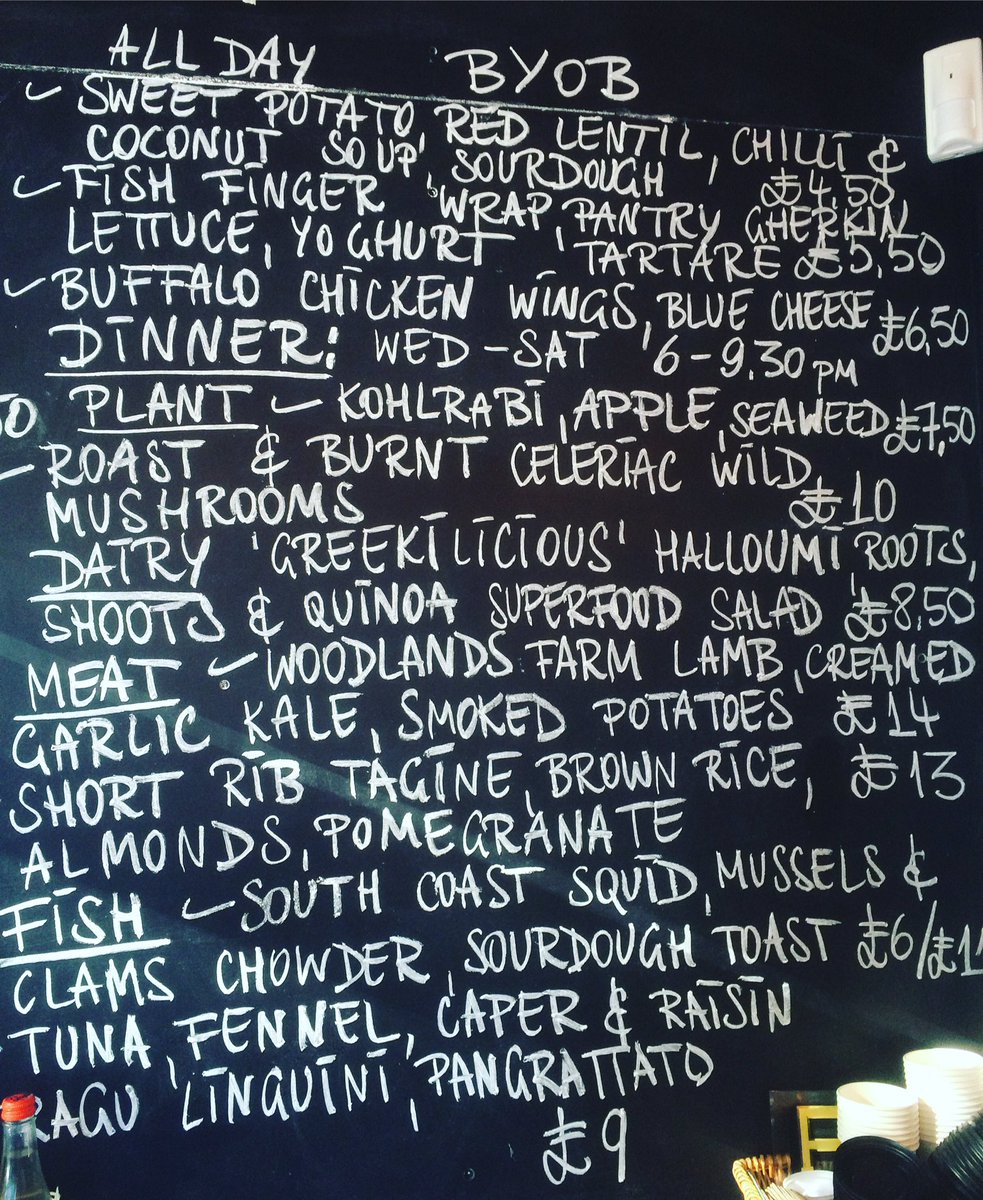 ALL DAY BYOB
✓ SWEET POTATO, RED LENTIL, CHILLI &
COCONUT SOUP, SOURDOUGH £4,50
✓ FISH FINGER WRAP, PANTRY GHERKIN
LETTUCE, YOGHURT, TARTARE £5,50
✓ BUFFALO CHICKEN WINGS, BLUE CHEESE £6,50
DINNER: WED-SAT '6-9.30 PM
PLANT ✓ KOHLRABI, APPLE, SEAWEED £7,50
✓ ROAST & BURNT CELERIAC WILD
MUSHROOMS £10
DAIRY 'GREEKILICIOUS' HALLOUMI ROOTS,
SHOOTS & QUINOA SUPERFOOD SALAD £8,50
MEAT ✓ WOODLANDS FARM LAMB, CREAMED
GARLIC KALE, SMOKED POTATOES £14
SHORT RIB TAGINE, BROWN RICE, £13
ALMONDS, POMEGRANATE
FISH ✓ SOUTH COAST SQUID, MUSSELS &
CLAMS CHOWDER, SOURDOUGH TOAST £6/£11
TUNA, FENNEL, CAPER & RAISIN
RAGU LINGUINI, PANGRATTATO
£9